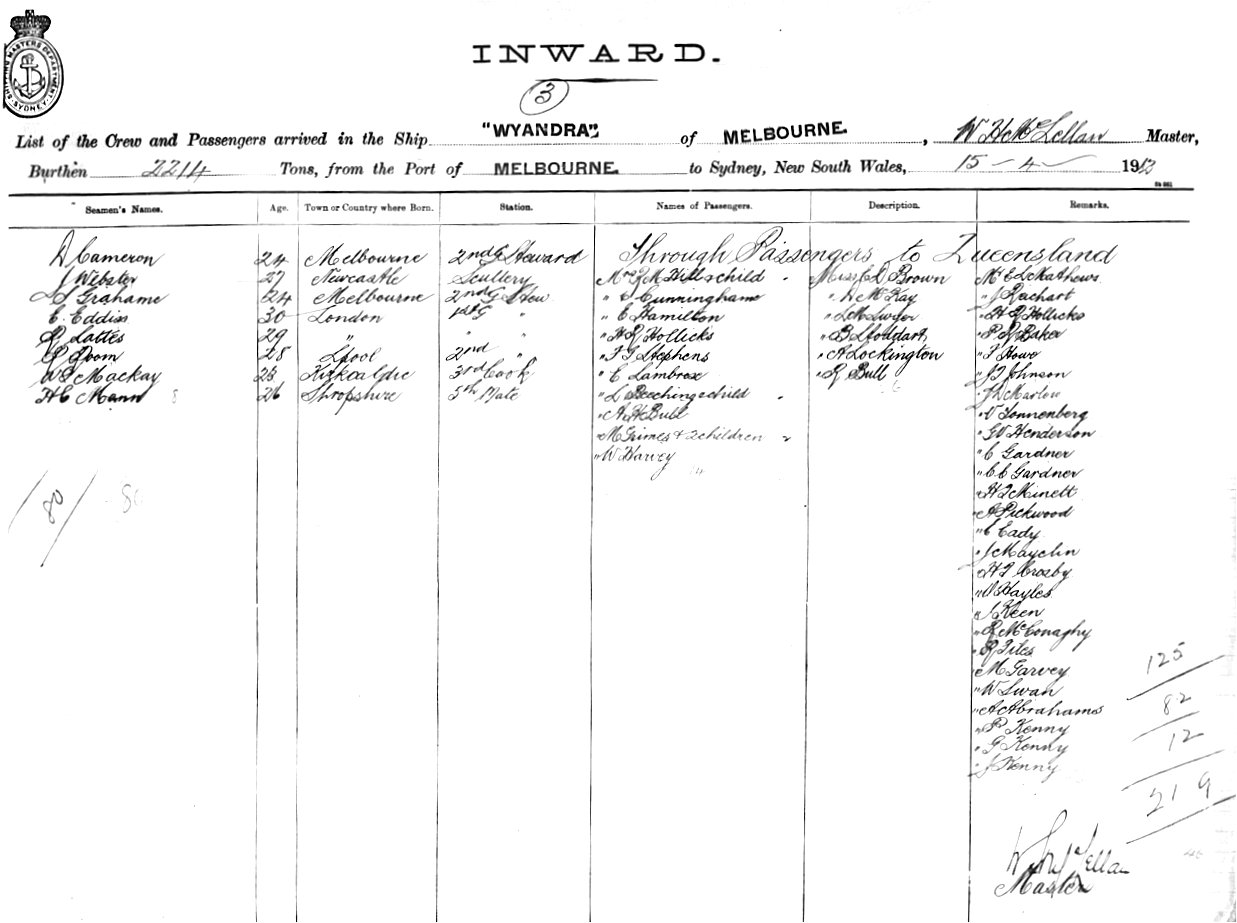 SHIPPING MASTERS DEPARTMENT SYDNEY
INWARD.
3
List of the Crew and Passengers arrived in the Ship "WYANDRA" of MELBOURNE, W H McLellan Master,
Burthen 2214 Tons, from the Port of MELBOURNE to Sydney, New South Wales, 15 - 4 - 1913
Seamen's Names. Age. Town or Country where Born. Station. Names of Passengers. Description. Remarks.
Through Passengers to Queensland
D Cameron 24 Melbourne 2nd G Steward
J Webster 27 Newcastle Scullery
Grahame 24 Melbourne 2nd G Stew
E. Eddiss 30 London 1st G "
R Lattes 29 " "
Doom 28 L'pool 2nd "
Mackay 23 Kirkcaldie 3rd Cook
H E Mann 26 Shropshire 5th Mate
80
Mrs Hill & child
" Cunningham
" C Hamilton
" H R Hollicks
" Stephens
" C Lambrox
" L Beeching & child
" A H Bull
" M Grimes & 2 children
" W Harvey
Miss Brown
" McKay
" Swyer
" B Stoddart
" A Lockington
" R Bull
Mr Mathews
" J Rachart
" H R Hollicks
" P R Baker
" F Howe
" Johnson
" Marlow
" V Sonnenberg
" Henderson
" C Gardner
" C C Gardner
" Minett
" A Pickwood
" C Cady
" J Mayclin
" Crosby
" Hayles
" J Keen
" R McConaghy
" R Files
" M Garvey
" W Swan
" A Abrahams
" P Kenny
" G Kenny
" J Kenny
125
82
12
219
W H McLellan
Master